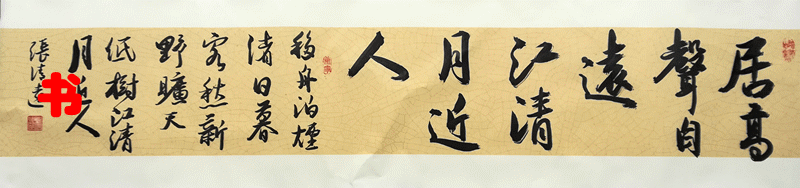 居高
聲自
遠
江清
月近
人
移舟泊煙
渚日暮
客愁新
野曠天
低樹江清
月近人
張
书